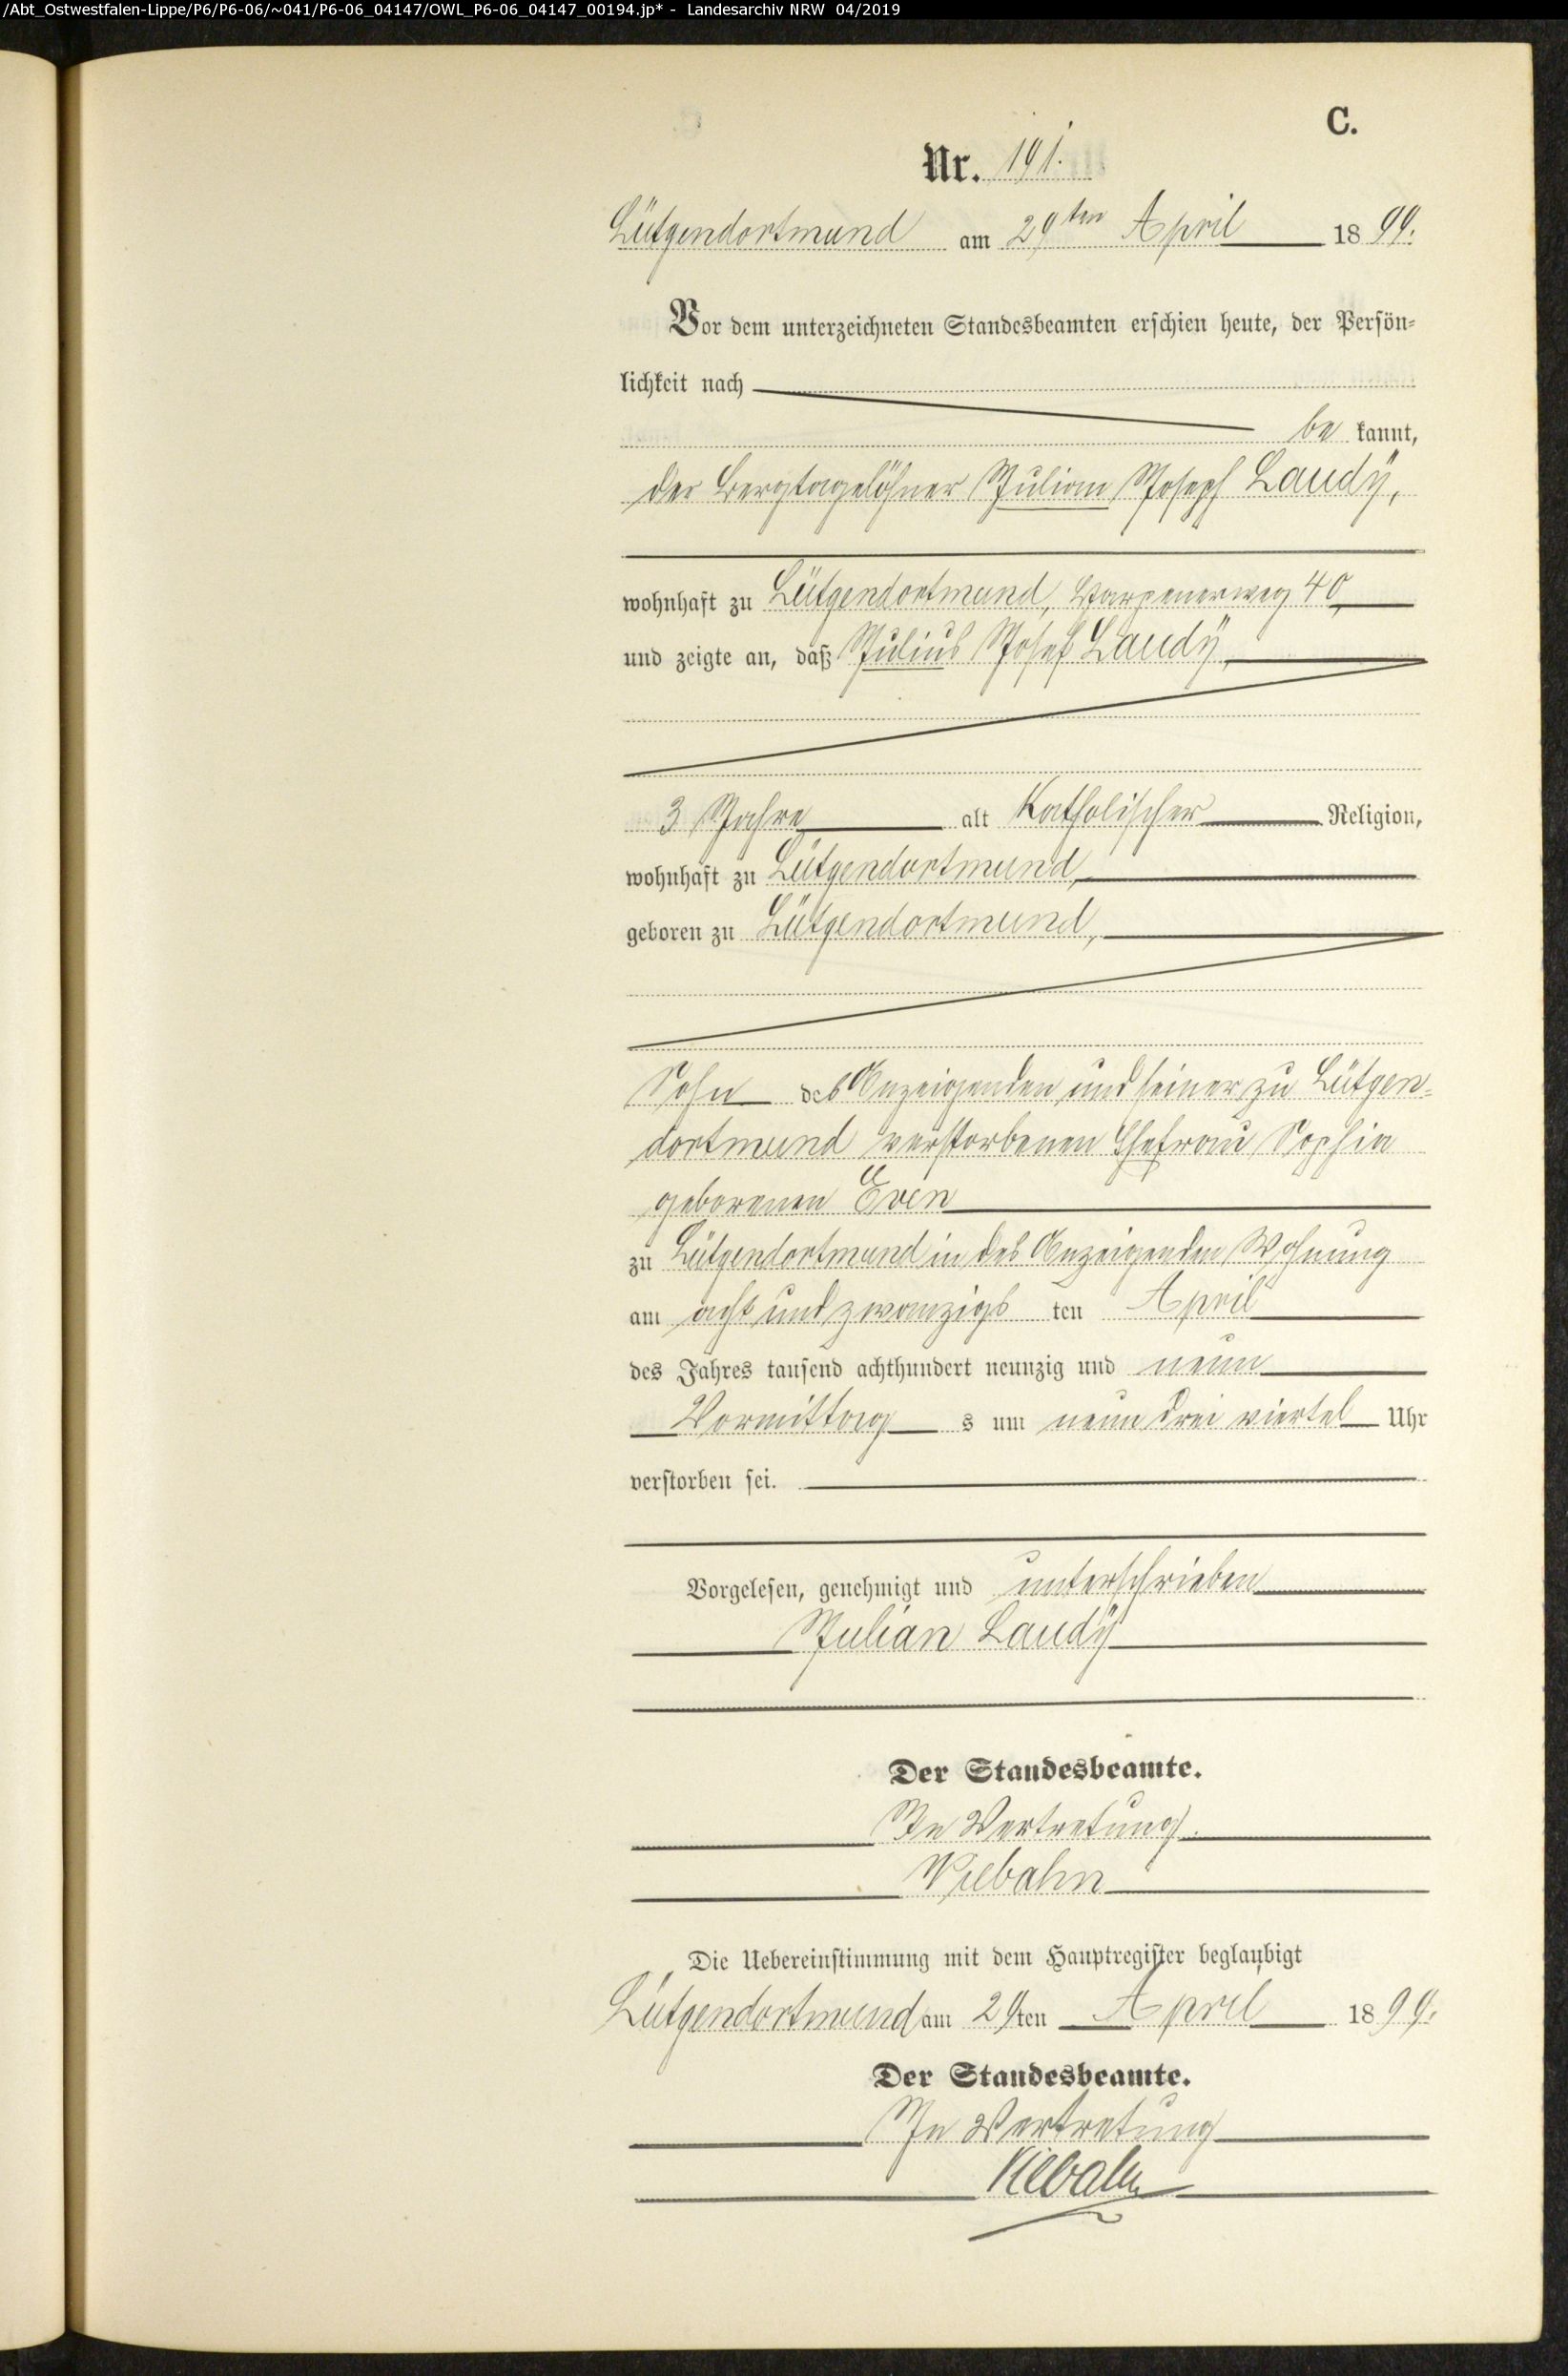 /Abt_Ostwestfalen-Lippe/P6/P6-06/~041/P6-06_04147/OWL_P6-06_04147_00194.jp* - Landesarchiv NRW 04/2019
C.
Nr. 191.
Lütgendortmund am 29ten April 1899.
Vor dem unterzeichneten Standesbeamten erschien heute, der Persön-
lichkeit nach
be kannt,
der Bergtagelöhner Julian Joseph Laudÿ,
wohnhaft zu Lütgendortmund, 40
und zeigte an, daß Julius Josef Laudÿ,
3 Jahre alt Katholischer Religion,
wohnhaft zu Lütgendortmund,
geboren zu Lütgendortmund,
Sohn des Anzeigenden und seiner zu Lütgen-
dortmund verstorbenen Ehefrau Sophia
geborenen Even
zu Lütgendortmund in des Anzeigenden Wohnung
am acht und zwanzigs ten April
des Jahres tausend achthundert neunzig und neun
Vormittag s um neun drei viertel Uhr
verstorben sei.
Vorgelesen, genehmigt und unterschrieben
Julian Laudÿ
Der Standesbeamte.
In Vertretung.
Viebahn
Die Uebereinstimmung mit dem Hauptregister beglaubigt
Lütgendortmund am 29ten April 1899.
Der Standesbeamte.
In Vertretung
Viebahn